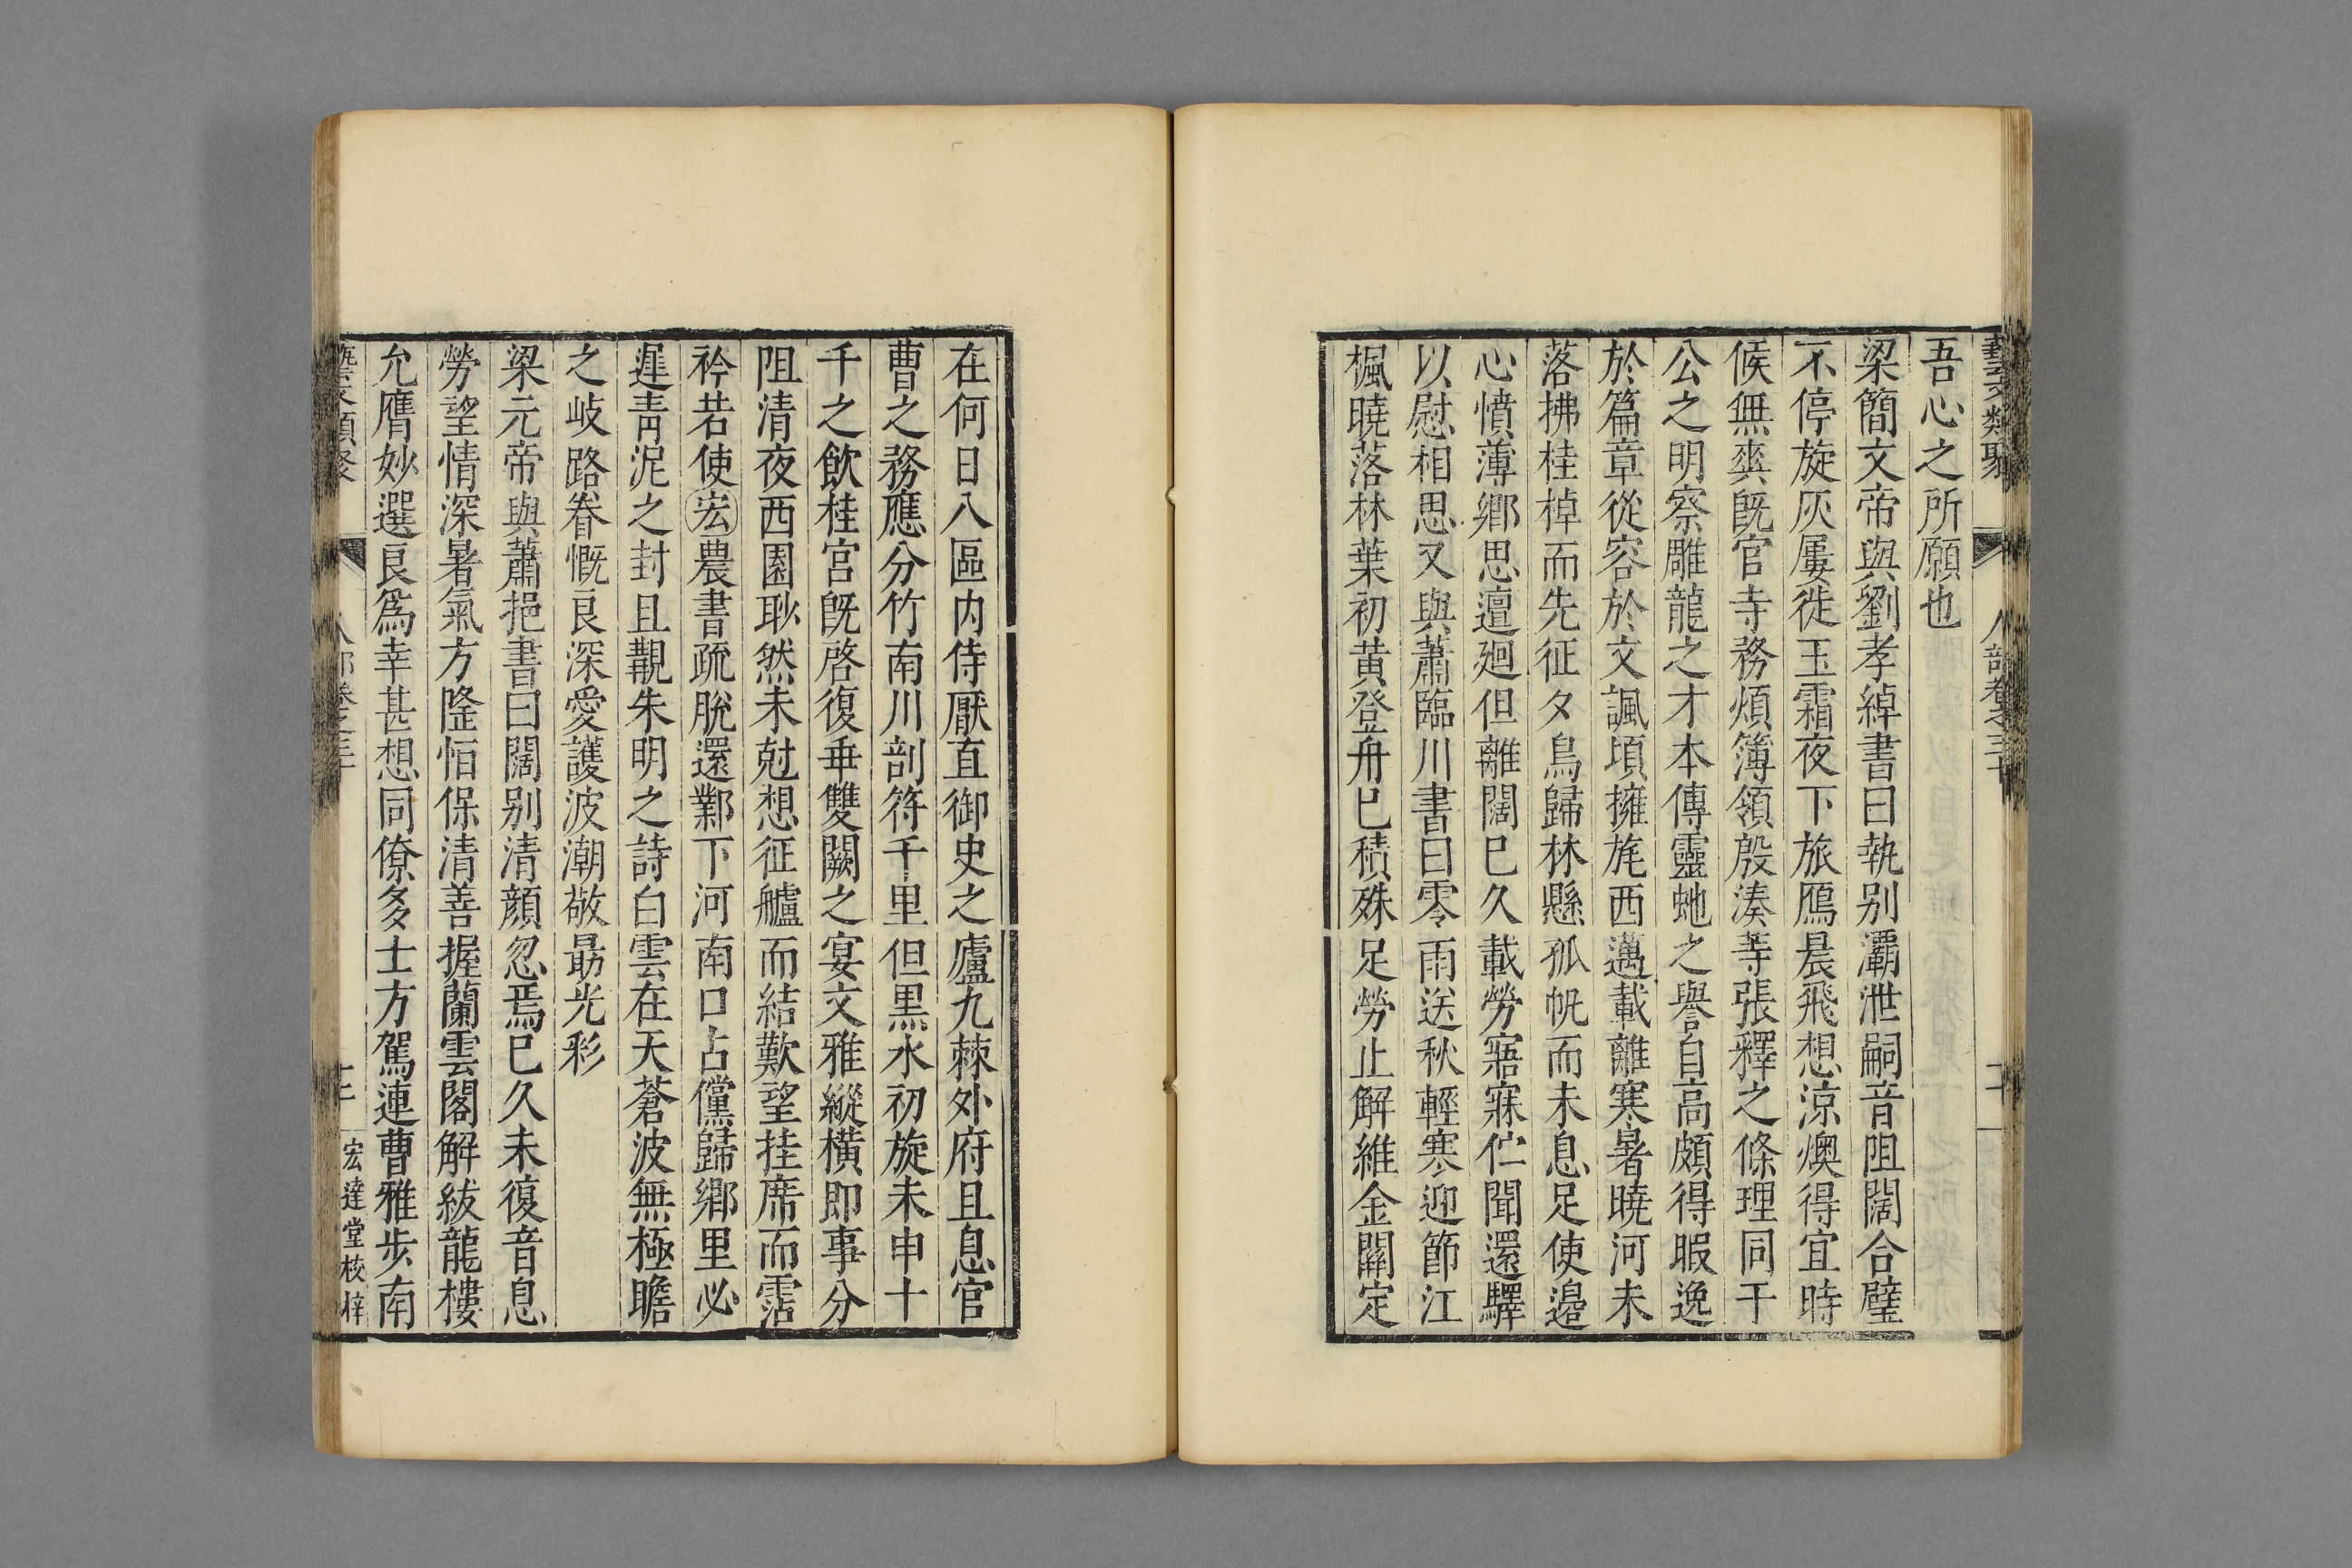 藝文類聚 人部卷之三十 十一
吾心之所願也
梁簡文帝與劉孝綽書曰執别灞泄嗣音阻闊合璧
不停旋灰屢徙玉霜夜下旅鴈晨飛想涼燠得宜時
候無爽旣官寺務煩簿領殷湊等張釋之條理同于
公之明察雕龍之才本傳靈虵之譽自高頗得暇逸
於篇章從容於文諷頃擁旄西邁載離寒暑曉河未
落拂桂棹而先征夕鳥歸林懸孤帆而未息足使邉
心憤薄鄉思邅迴但離闊已久載勞寤寐伫聞還驛
以慰相思又與蕭臨川書曰零雨送秋輕寒迎節江
楓曉落林葉初黃登舟已積殊足勞止解維金闕定
在何日八區内侍厭直御史之廬九棘外府且息官
曹之務應分竹南川剖符千里但黒水初旋未申十
千之飲桂宮旣啓復垂雙闕之宴文雅縱橫即事分
阻清夜西園眇然未尅想征艫而結歎望挂席而霑
衿若使宏農書疏脫還鄴下河南口占儻歸鄉里必
遲靑泥之封且覯朱明之詩白雲在天蒼波無極瞻
之岐路眷慨良深愛護波潮敬朂光彩
梁元帝與蕭挹書曰闊别清顔忽焉已久未復音息
勞望情深暑氣方隆恒保清善握蘭雲閣解紱龍樓
允膺妙選良爲幸甚想同僚多士方駕連曹雅步南
藝文類聚 人部卷之三十 十二 宏達堂校梓